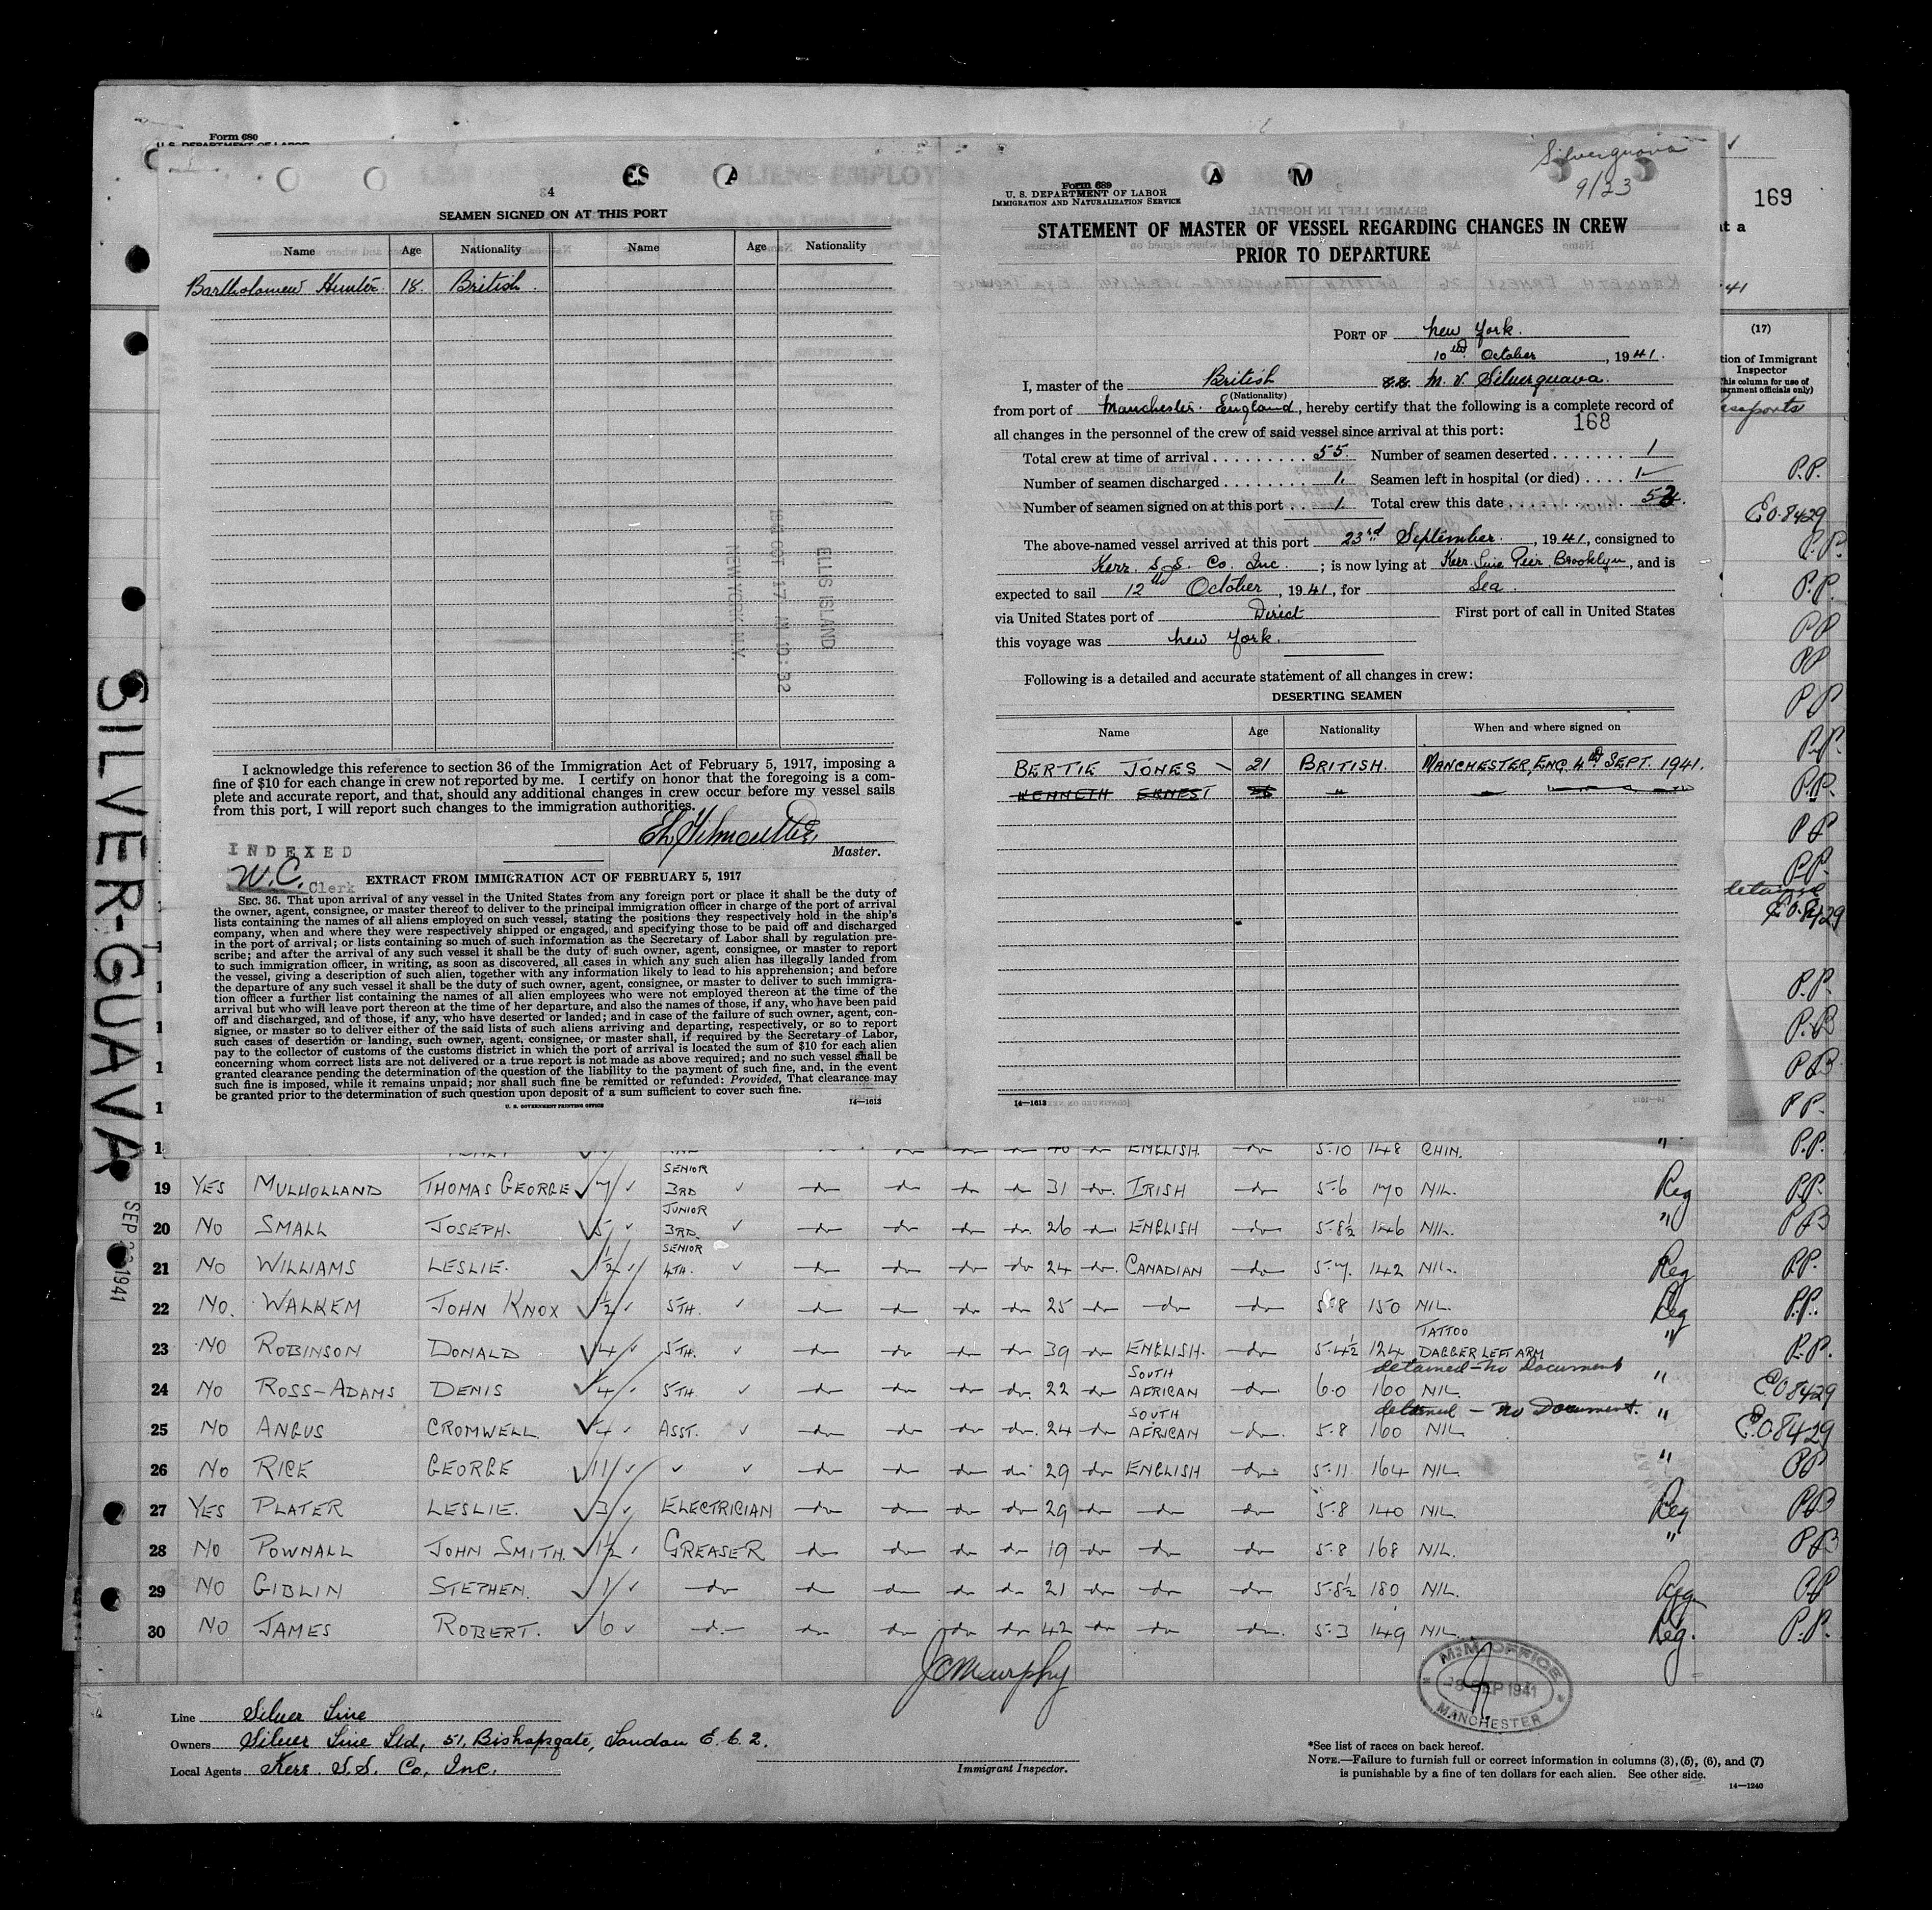 Form 680
U. S. DEPARTMENT OF LABOR
169
4
SEAMEN SIGNED ON AT THIS PORT
Name Age Nationality Name Age Nationality
Bartholomew Hunter. 18. British.
ELLIS ISLAND
NEW YORK, N.Y.
I acknowledge this reference to section 36 of the Immigration Act of February 5, 1917, imposing a
fine of $10 for each change in crew not reported by me. I certify on honor that the foregoing is a com-
plete and accurate report, and that, should any additional changes in crew occur before my vessel sails
from this port, I will report such changes to the immigration authorities.
Master.
INDEXED
W.C. Clerk
EXTRACT FROM IMMIGRATION ACT OF FEBRUARY 5, 1917
SEC. 36. That upon arrival of any vessel in the United States from any foreign port or place it shall be the duty of
the owner, agent, consignee, or master thereof to deliver to the principal immigration officer in charge of the port of arrival
lists containing the names of all aliens employed on such vessel, stating the positions they respectively hold in the ship's
company, when and where they were respectively shipped or engaged, and specifying those to be paid off and discharged
in the port of arrival; or lists containing so much of such information as the Secretary of Labor shall by regulation pre-
scribe; and after the arrival of any such vessel it shall be the duty of such owner, agent, consignee, or master to report
to such immigration officer, in writing, as soon as discovered, all cases in which any such alien has illegally landed from
the vessel, giving a description of such alien, together with any information likely to lead to his apprehension; and before
the departure of any such vessel it shall be the duty of such owner, agent, consignee, or master to deliver to such immigra-
tion officer a further list containing the names of all alien employees who were not employed thereon at the time of the
arrival but who will leave port thereon at the time of her departure, and also the names of those, if any, who have been paid
off and discharged, and of those, if any, who have deserted or landed; and in case of the failure of such owner, agent, con-
signee, or master so to deliver either of the said lists of such aliens arriving and departing, respectively, or so to report
such cases of desertion or landing, such owner, agent, consignee, or master shall, if required by the Secretary of Labor,
pay to the collector of customs of the customs district in which the port of arrival is located the sum of $10 for each alien
concerning whom correct lists are not delivered or a true report is not made as above required; and no such vessel shall be
granted clearance pending the determination of the question of the liability to the payment of such fine, and, in the event
such fine is imposed, while it remains unpaid; nor shall such fine be remitted or refunded: Provided, That clearance may
be granted prior to the determination of such question upon deposit of a sum sufficient to cover such fine.
U. S. GOVERNMENT PRINTING OFFICE 14—1613
Silverguava
9/23
Form 689
U. S. DEPARTMENT OF LABOR
IMMIGRATION AND NATURALIZATION SERVICE
STATEMENT OF MASTER OF VESSEL REGARDING CHANGES IN CREW
PRIOR TO DEPARTURE
PORT OF New York.
10th October, 1941.
I, master of the British S.S. M.V. Silverguava.
(Nationality)
from port of Manchester. England, hereby certify that the following is a complete record of
168
all changes in the personnel of the crew of said vessel since arrival at this port:
Total crew at time of arrival 55. Number of seamen deserted 1
Number of seamen discharged 1. Seamen left in hospital (or died) 1
Number of seamen signed on at this port 1. Total crew this date
The above-named vessel arrived at this port 23rd September., 1941, consigned to
Kerr. S.S. Co. Inc.; is now lying at Kerr Line Pier Brooklyn, and is
expected to sail 12th October, 1941, for Sea.
via United States port of Direct First port of call in United States
this voyage was New York.
Following is a detailed and accurate statement of all changes in crew:
DESERTING SEAMEN
Name Age Nationality When and where signed on
BERTIE JONES 21 BRITISH. MANCHESTER, ENG. 4th SEPT. 1941.
KENNETH ERNEST 26 " "
14—1613
(17)
tion of Immigrant
Inspector
This column for use of
ernment officials only)
P.P.
E.O.8429
P.P.
P.P.
PP
PP
PP
P.P.
P.P.
PP
P.P.
detained
E.O.8429
P.P.
P.P.
PP
P.P.
P.P.
SILVER-GUAVA
SEP 1941
ENGLISH. do 5-10 148 CHIN. "
19 YES MULHOLLAND THOMAS GEORGE 7 SENIOR 3RD do do do do 31 do IRISH do 5-6 170 NIL. Reg P.P.
20 NO SMALL JOSEPH. 5 JUNIOR 3RD. do do do do 26 do ENGLISH do 5-8½ 146 NIL. " PP
21 NO WILLIAMS LESLIE. ½ SENIOR 4TH. do do do do 24 do CANADIAN do 5-7. 142 NIL. Reg P.P.
22 NO. WALKEM JOHN KNOX ½ 5TH. do do do do 25 do do do 5-8 150 NIL. Reg P.P.
23 NO ROBINSON DONALD 4 5TH. do do do do 39 do ENGLISH. do 5-4½ 124 TATTOO DAGGER LEFT ARM " P.P.
detained - no Document
24 NO ROSS-ADAMS DENIS ¼ 5TH. do do do do 22 do SOUTH AFRICAN do 6-0 160 NIL. " E.O.8429
detained - no Document.
25 NO ANGUS CROMWELL. 4 ASST. do do do do 24 do SOUTH AFRICAN do 5-8 160 NIL " E.O.8429
26 NO RICE GEORGE 11 do do do do 29 do ENGLISH do 5-11 164 NIL. " PP
27 YES PLATER LESLIE. 3 ELECTRICIAN do do do do 29 do do do 5-8 140 NIL. Reg PP
28 NO POWNALL JOHN SMITH. 1½ GREASER do do do do 19 do do do 5-8 168 NIL. " PP
29 NO GIBLIN STEPHEN. 1 do do do do do 21 do do do 5-8½ 180 NIL. Reg PP
30 NO JAMES ROBERT. 6 do do do do do 42 do do do 5-3 149 NIL. Reg. P.P.
JC Murphy
M.M. OFFICE
8 SEP 1941
MANCHESTER
Line Silver Line
Owners Silver Line Ltd, 51, Bishopsgate, London E.C.2.
Local Agents Kerr. S.S. Co, Inc.
Immigrant Inspector.
*See list of races on back hereof.
NOTE.—Failure to furnish full or correct information in columns (3), (5), (6), and (7)
is punishable by a fine of ten dollars for each alien. See other side.
14—1240